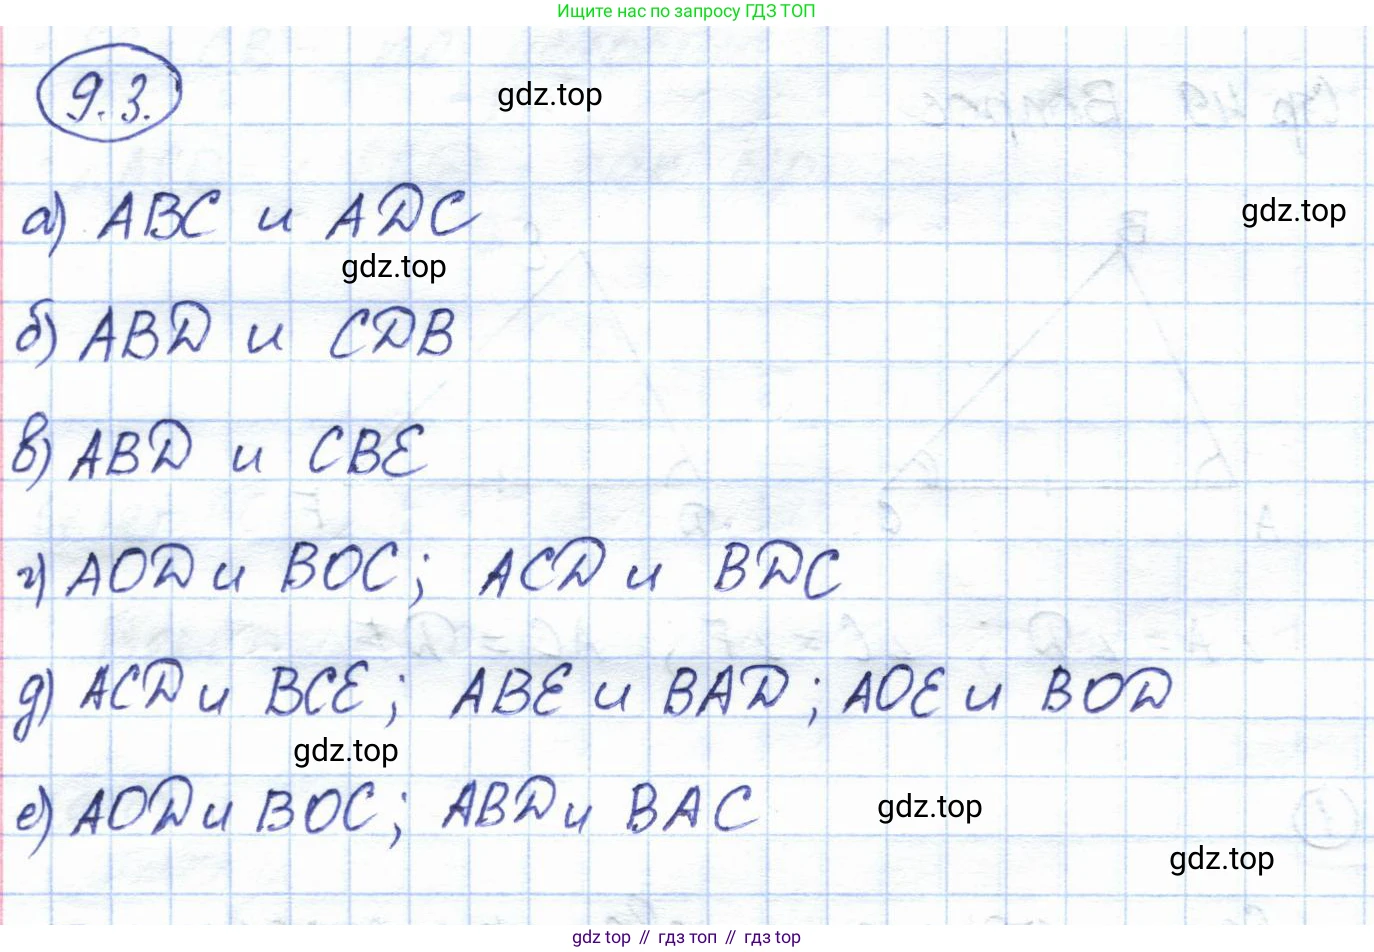 Ищите нас по запросу ГДЗ ТОП
9.3.
gdz.top
а) ABC и ADC
gdz.top
gdz.top
б) ABD и CDB
в) ABD и CBE
г) AOD и BOC; ACD и BDC
д) ACD и BCE; ABE и BAD; AOE и BOD
gdz.top
е) AOD и BOC; ABD и BAC
gdz.top
gdz.top
gdz top // гдз топ // гдз top